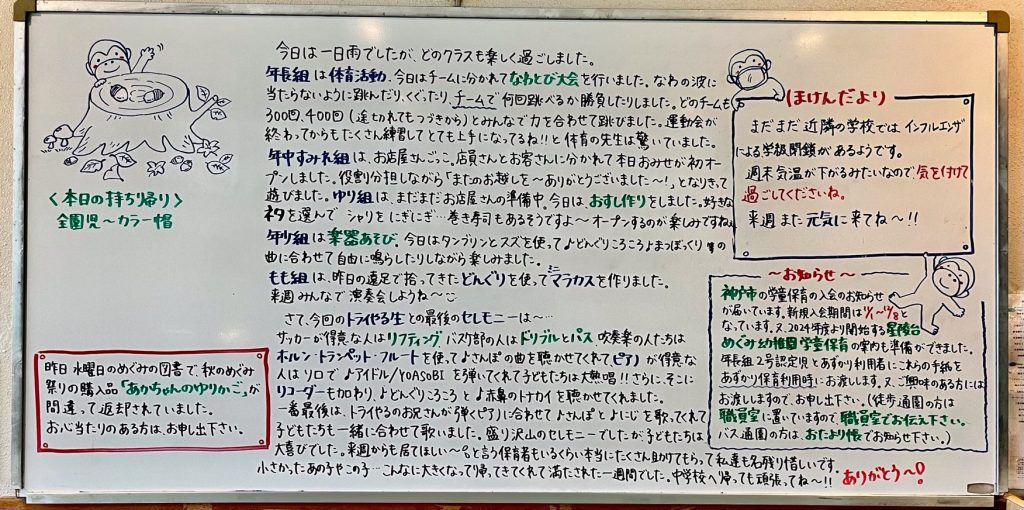 今日は一日雨でしたが、どのクラスも楽しく過ごしました。
年長組は体育活動。今日はチームに分かれてなわとび大会を行いました。なわの波に
当たらないように跳んだり、くぐったり、チームで何回跳べるか勝負したりしました。どのチームも
300回、400回(途切れてもつづきから)とみんなで力を合わせて跳びました。運動会が
終わってからもたくさん練習してとても上手になってるね!!と体育の先生は驚いていました。
年中すみれ組は、お店屋さんごっこ。店員さんとお客さんに分かれて本日おみせが初オー
プンしました。役割分担しながら「またのお越しを〜ありがとうございました〜!」となりきって
遊びました。ゆり組は、まだまだお店屋さんの準備中。今日は、おすし作りをしました。好きな
ネタを選んで シャリをにぎにぎ…巻き寿司もあるそうですよ〜オープンするのが楽しみですね。
年少組は楽器あそび。今日はタンブリンとスズを使って♪どんぐりころころ♪まつぼっくり 等の
曲に合わせて自由に鳴らしたりしながら楽しみました。
もも組は、昨日の遠足で拾ってきたどんぐりを使ってミニマラカスを作りました。
来週みんなで演奏会しようね〜
さて、今回のトライやる生との最後のセレモニーは〜…
サッカーが得意な人はリフティング バスケ部の人はドリブルとパス 吹奏楽の人たちは
ホルン・トランペット・フルートを使って♪さんぽの曲を聴かせてくれてピアノが得意な
人はソロで♪アイドル/YOASOBIを弾いてくれて子どもたちは大熱唱!!さらに、そこに
リコーダーも加わり、♪どんぐりころころ と ♪赤鼻のトナカイを聴かせてくれました。
一番最後は、トライやるのお兄さんが弾くピアノに合わせて♪さんぽと♪にじを歌ってくれて
子どもたちも一緒に合わせて歌いました。盛り沢山のセレモニーでしたが、子どもたちは
大喜びでした。来週からも居てほしい〜!と言う保育者もいるくらい本当にたくさん助けてもらって私達も名残り惜しいです。
小さかったあの子やこの子…こんなに大きくなって帰ってきてくれて満たされた一週間でした。中学校へ帰っても頑張ってね〜!!
ありがとう〜!
〈本日の持ち帰り〉
全園児〜カラー帽
昨日 水曜日のめぐみの図書で、秋のめぐみ
祭りの購入品「あかちゃんのゆりかご」が
間違って返却されていました。
お心当たりのある方は、お申し出下さい。
ほけんだより
まだまだ近隣の学校では、インフルエンザ
による学級閉鎖があるようです。
週末気温が下がるみたいなので、気を付けて
過ごしてくださいね。
来週また元気に来てね〜!!
〜お知らせ〜
神戸市の学童保育の入会のお知らせ
が届いています。新規入会期間は
なっています。又、2024年度より開始する星陵台
めぐみ幼稚園学童保育の案内も準備ができました。
年長組2号認定児とあずかり利用者にこれらの手紙を
あずかり保育利用時にお渡します。又、ご興味のある方には
お渡ししますので、お申し出下さい。(徒歩通園の方は
職員室に置いていますので、職員室でお伝え下さい。
バス通園の方は、おたより帳でお知らせ下さい。)